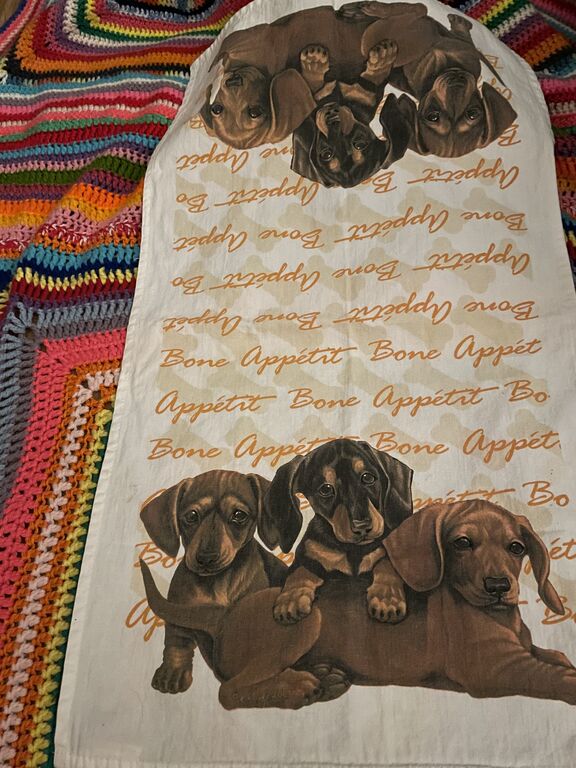 Appét
Appétit Bone Appétit Bo
Bone Appétit Bone Appét
Appétit Bone Appétit Bo
Bone Appétit Bone Appét
Bone Appétit Bone Appét
Appétit Bone Appétit Bo
Bone Appétit Bone Appét
ppétit Bo
Bo
Ap